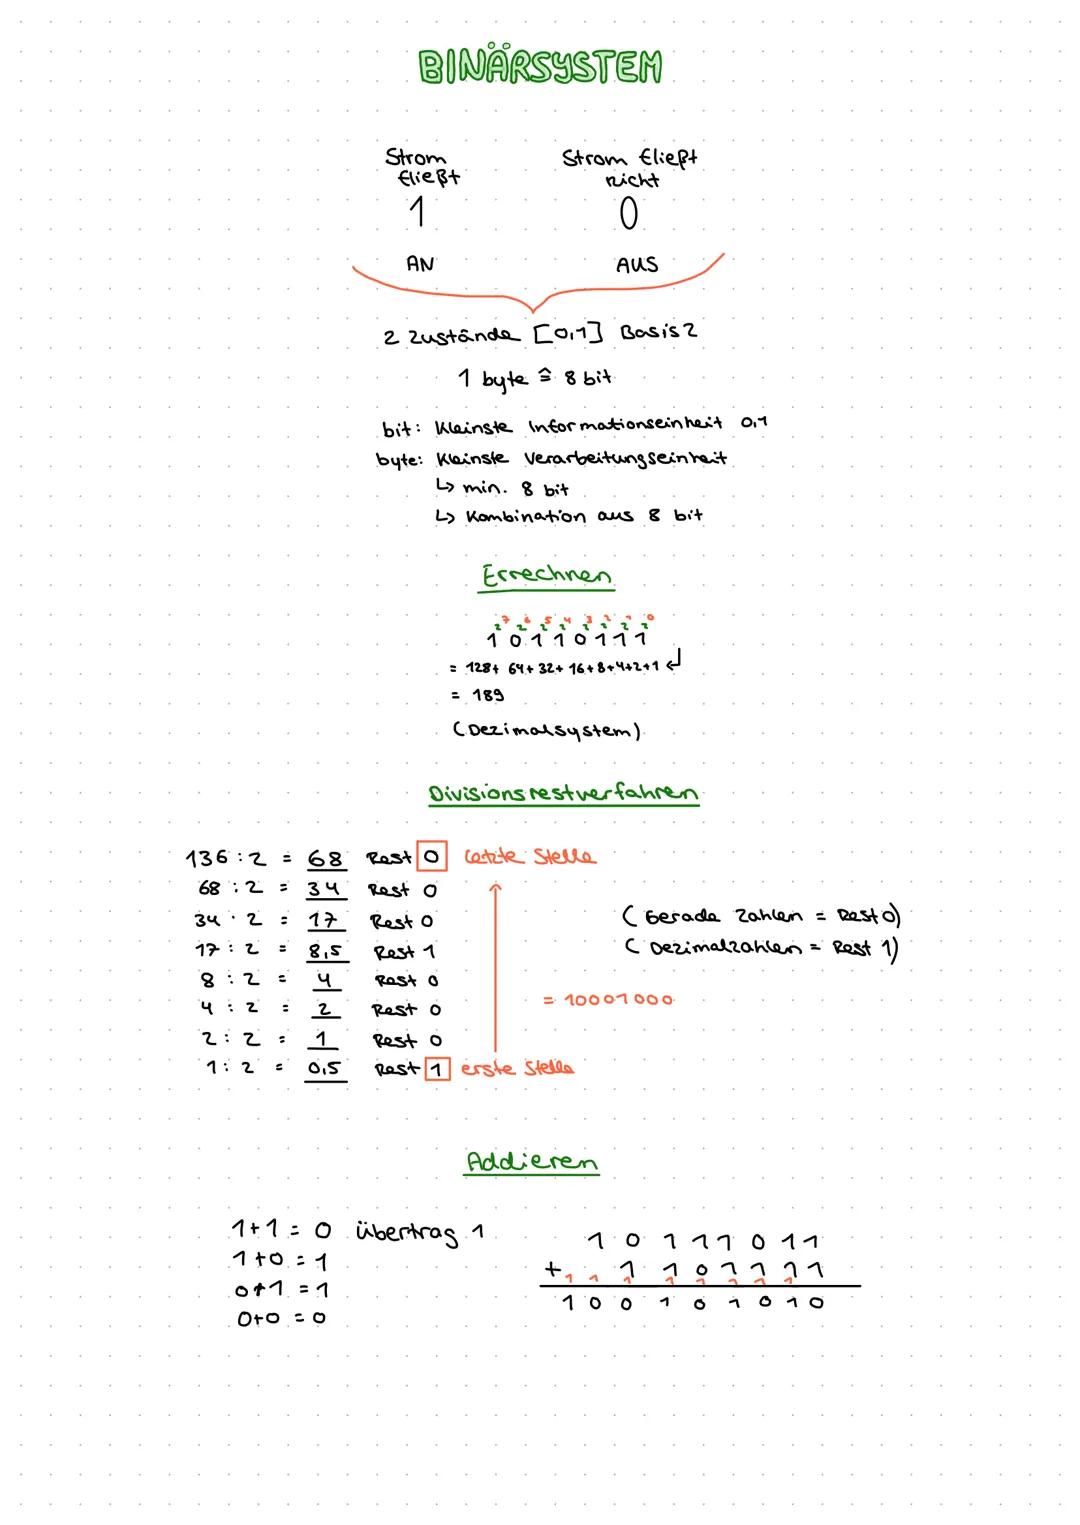 BINÄRSYSTEM
Strom fließt
Strom fließt nicht
1
0
AN
AUS
2 Zustände [0,1] Basis 2
1 byte ≙ 8 bit
bit: Kleinste Informationseinheit 0,1
byte: Kleinste Verarbeitungseinheit
↳ min. 8 bit
↳ Kombination aus 8 bit
Errechnen
2⁷ 2⁶ 2⁵ 2⁴ 2³ 2² 2¹ 2⁰
1 0 1 1 0 1 1 1
= 128+ 64+ 32+ 16+8+4+2+1 ↵
= 189
(Dezimalsystem)
Divisionsrestverfahren
136 : 2 = 68 Rest 0 letzte Stelle
68 : 2 = 34 Rest 0
34 : 2 = 17 Rest 0
17 : 2 = 8,5 Rest 1
8 : 2 = 4 Rest 0
4 : 2 = 2 Rest 0
2 : 2 = 1 Rest 0
1 : 2 = 0,5 Rest 1 erste Stelle
(Gerade Zahlen = Rest 0)
(Dezimalzahlen = Rest 1)
= 10001000
Addieren
1+1 = 0 übertrag 1
1+0 = 1
0+1 = 1
0+0 = 0
1 0 1 1 1 0 1 1
+ 1 1 0 1 1 1 1
1 1 1 1 1 1 1 1
1 0 0 1 0 1 0 1 0